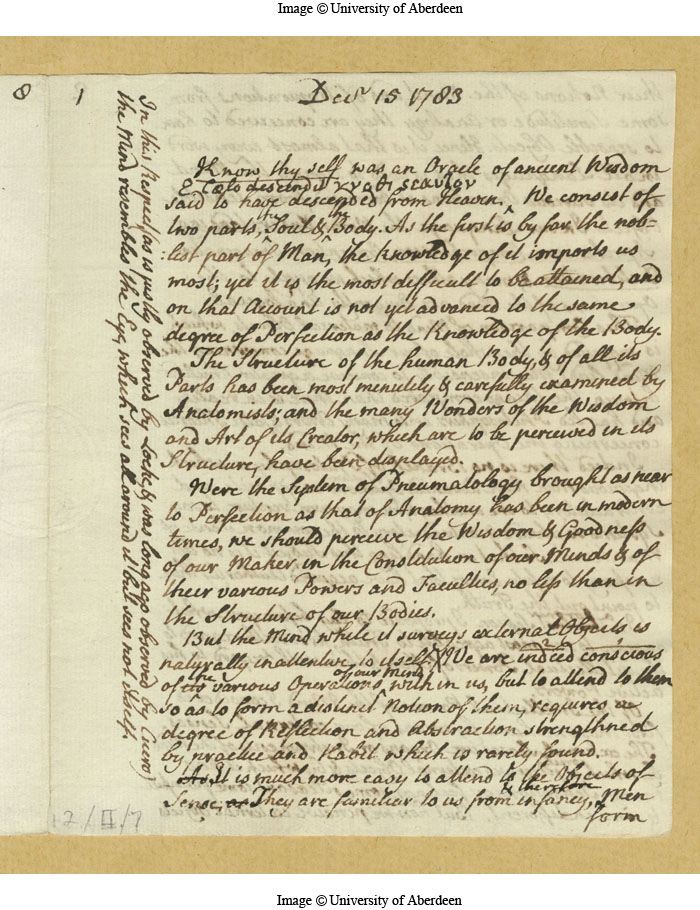 Image © University of Aberdeen
8
1
Decr 15 1783
Know thy self was an Oracle of ancient Wisdom
E Cælo descendit γνῶθι σεαυτον
said to have descended from Heaven. We consist of
two parts, the Soul & the Body. As the first is by far the nob=
=lest part of Man, the knowledge of it imports us
most; yet it is the most difficult to be attained, and
on that Account is not yet advanced to the same
degree of Perfection as the Knowledge of the Body.
The Structure of the human Body, & of all its
Parts has been most minutely & carefully examined by
Anatomists; and the many Wonders of the Wisdom
and Art of its Creator, which are to be perceived in its
Structure, have been displayed.
Were the System of Pneumatology brought as near
to Perfection as that of Anatomy has been in modern
times, we should perceive the Wisdom & Goodness
of our Maker in the Constitution of our Minds & of
their various Powers and Faculties, no less than in
the Structure of our Bodies.
But the Mind while it surveys external Objects is
naturally inattentive to itself. We are indeed conscious
of the various Operations of our Mind within us, but to attend to them
so as to form a distinct Notion of them, requires a
degree of Reflection and Abstraction strengthned
by practice and Habit which is rarely found.
As it is much more easy to attend to the Objects of
Sense, They are familiar to us from infancy, & therefore Men
form
In this Respect (as is justly observed by Locke, & was long ago observed by Cicero)
the Mind resembles the Eye, which sees all around it but sees not itself.
2/II/7
Image © University of Aberdeen